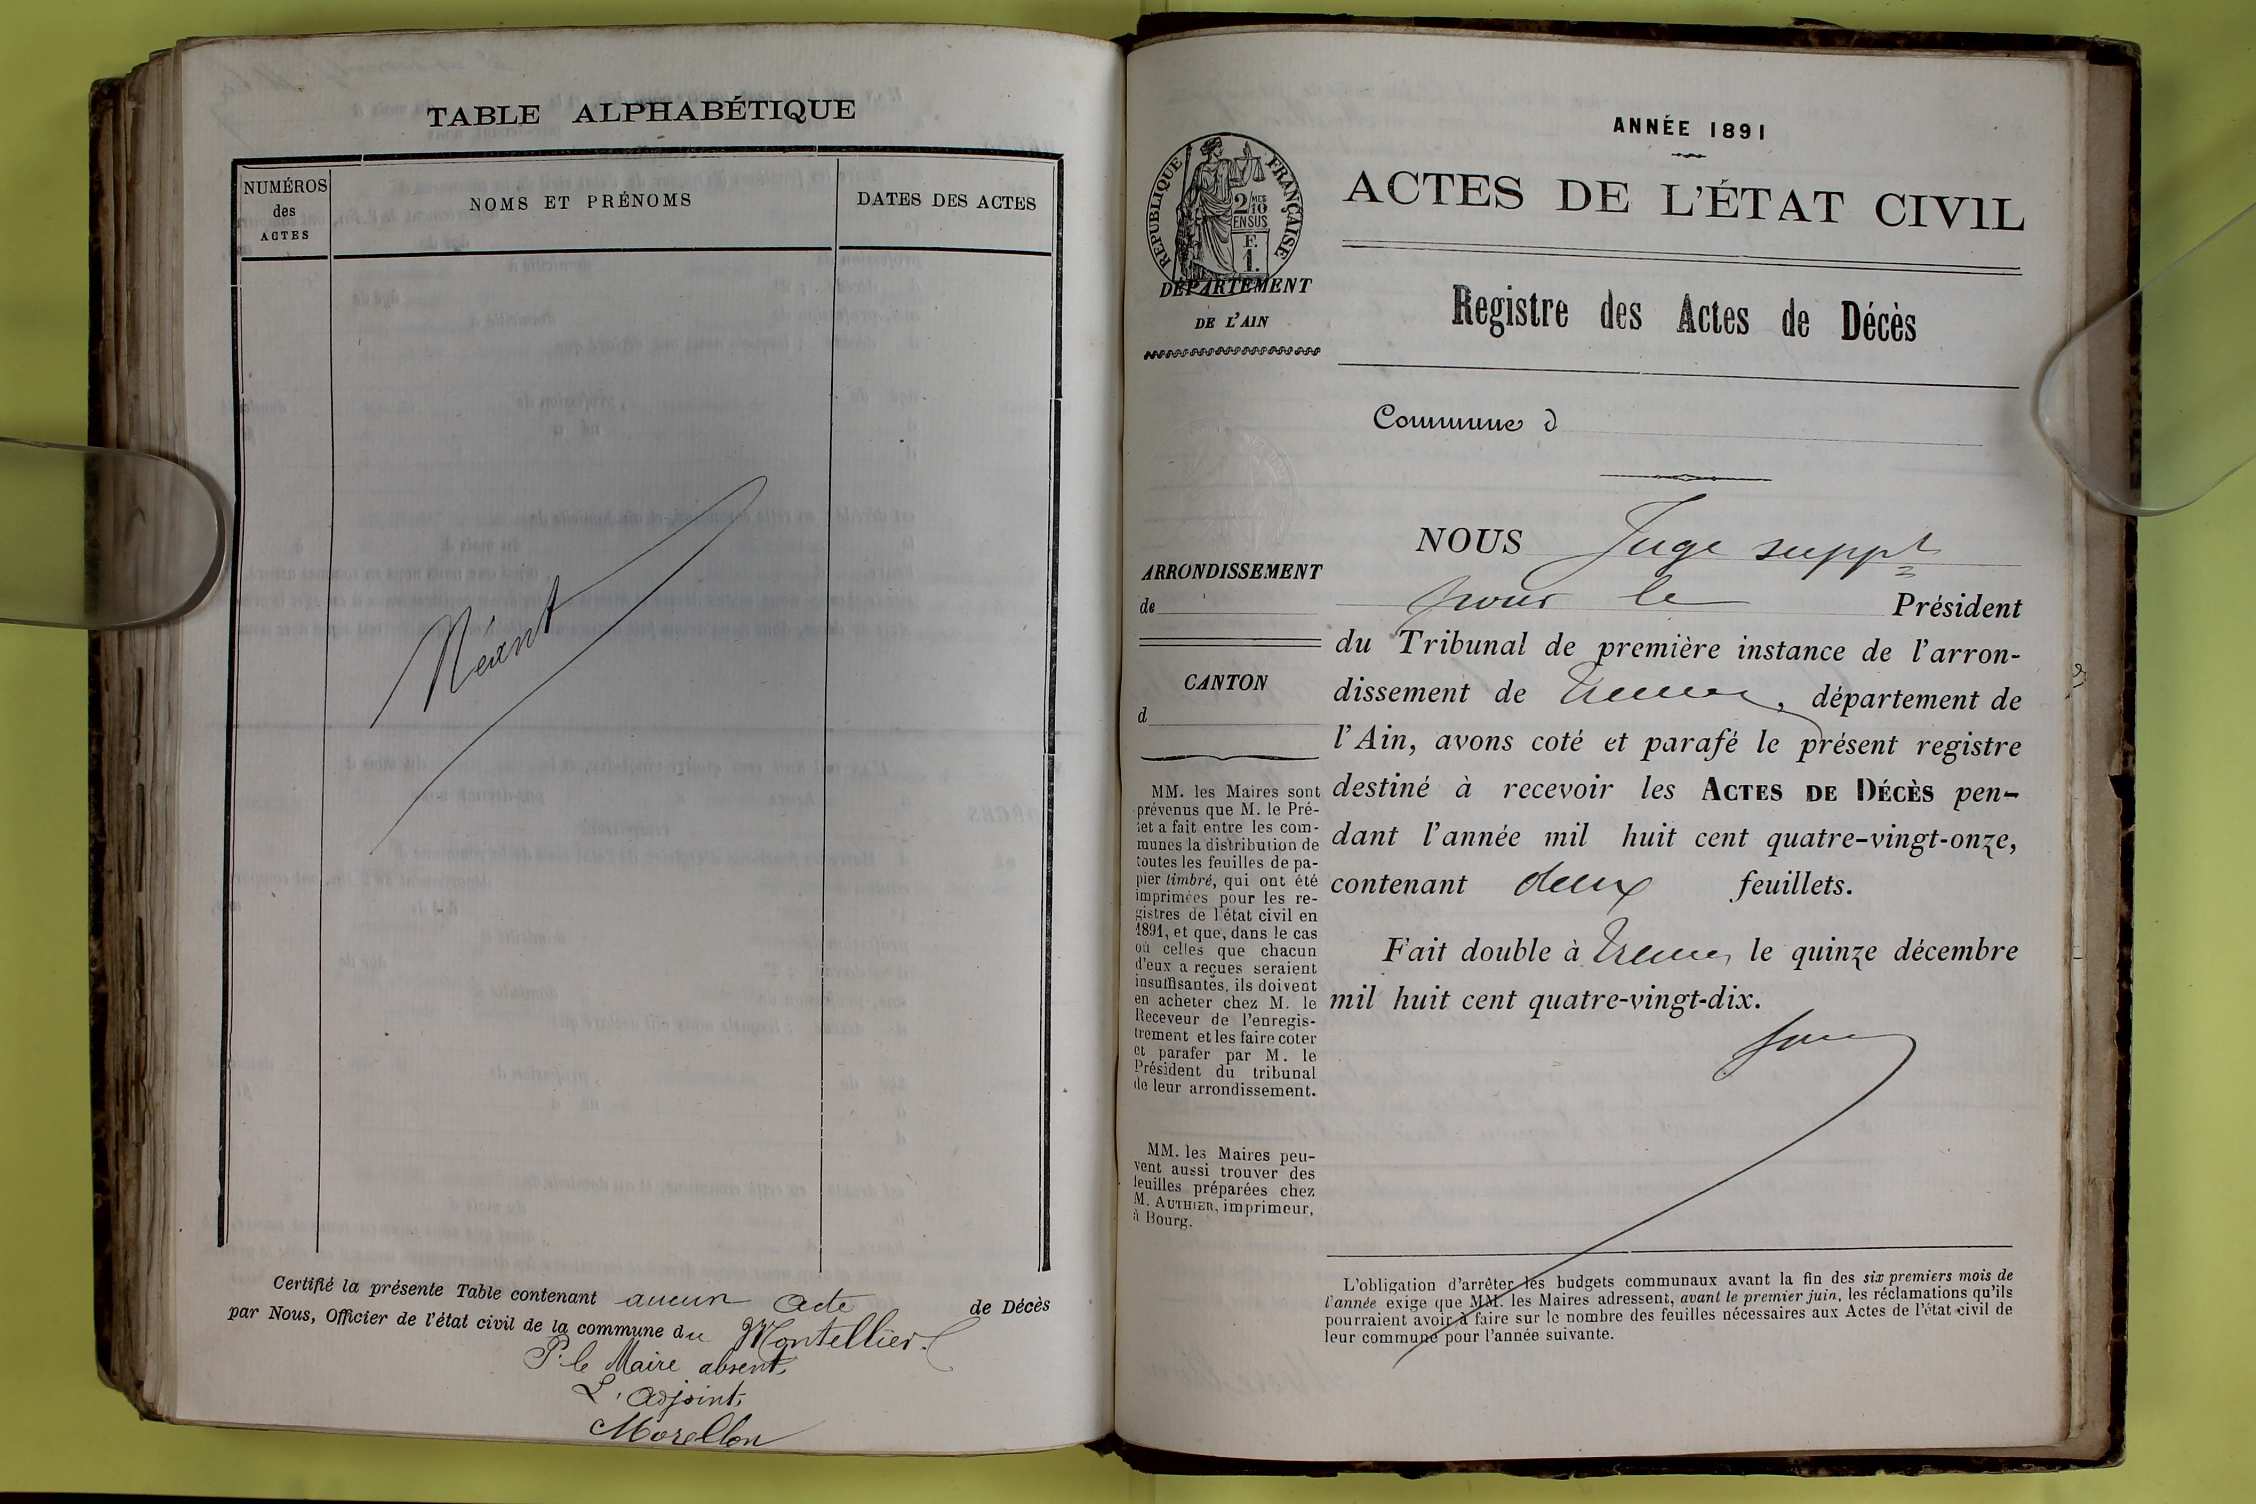 TABLE ALPHABÉTIQUE
NUMÉROS
des
ACTES
NOMS ET PRÉNOMS
DATES DES ACTES
Néant
Certifié la présente Table contenant aucun acte de Décès
par Nous, Officier de l'état civil de la commune du Montellier.
P. le Maire absent,
L'adjoint,
Morellon
ANNÉE 1891
ACTES DE L'ÉTAT CIVIL
REPUBLIQUE FRANÇAISE
2/10 MES
EN SUS
F.
1.
DÉPARTEMENT
DE L'AIN
Registre des Actes de Décès
Commune d
ARRONDISSEMENT
de
CANTON
d
MM. les Maires sont
prévenus que M. le Pré-
fet a fait entre les com-
munes la distribution de
toutes les feuilles de pa-
pier timbré, qui ont été
imprimées pour les re-
gistres de l'état civil en
1891, et que, dans le cas
où celles que chacun
d'eux a reçues seraient
insuffisantes, ils doivent
en acheter chez M. le
Receveur de l'enregis-
trement et les faire coter
et parafer par M. le
Président du tribunal
de leur arrondissement.
MM. les Maires peu-
vent aussi trouver des
feuilles préparées chez
M. AUTHIER, imprimeur,
à Bourg.
NOUS Juge suppt
pour le Président
du Tribunal de première instance de l'arron-
dissement de Trévoux, département de
l'Ain, avons coté et parafé le présent registre
destiné à recevoir les ACTES DE DÉCÈS pen-
dant l'année mil huit cent quatre-vingt-onze,
contenant deux feuillets.
Fait double à Trévoux le quinze décembre
mil huit cent quatre-vingt-dix.
L'obligation d'arrêter les budgets communaux avant la fin des six premiers mois de
l'année exige que MM. les Maires adressent, avant le premier juin, les réclamations qu'ils
pourraient avoir à faire sur le nombre des feuilles nécessaires aux Actes de l'état civil de
leur commune pour l'année suivante.